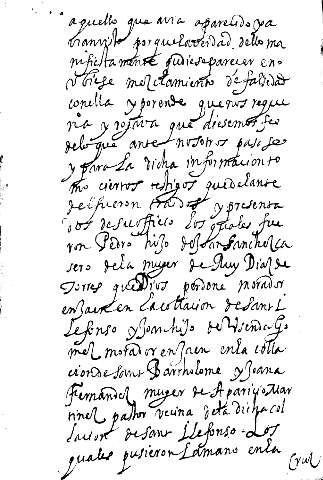 aquello que avia aparecido y a
vian visto porque la verdad dello ma
nifiestamente pudiese parecer e no
vbiese mezclamiento de falsedad
con ella y por ende que nos reque
ria y rogava que diesemos fee
de lo que ante nosotros pasase
y para la dicha informacion to
mo ciertos testigos que delante
del fueron traidos y presenta
dos de su officio los quales fue
ron Pedro hijo de Joan Sanchez ca
sero de la muger de Ruy Diaz de
Torres que Dios perdone morador
en Jaen en la collacion de Sant Il
lefonso y Joan hijo de Vsenda Go
mez morador en Jaen en la colla
cion de Sant Bartholome y Joana
Fernandez muger de Aparicio Mar
tinez pastor vecina de la dicha col
lacion de Sant Ilefonso Los
quales pusieron la mano en la
Cruz